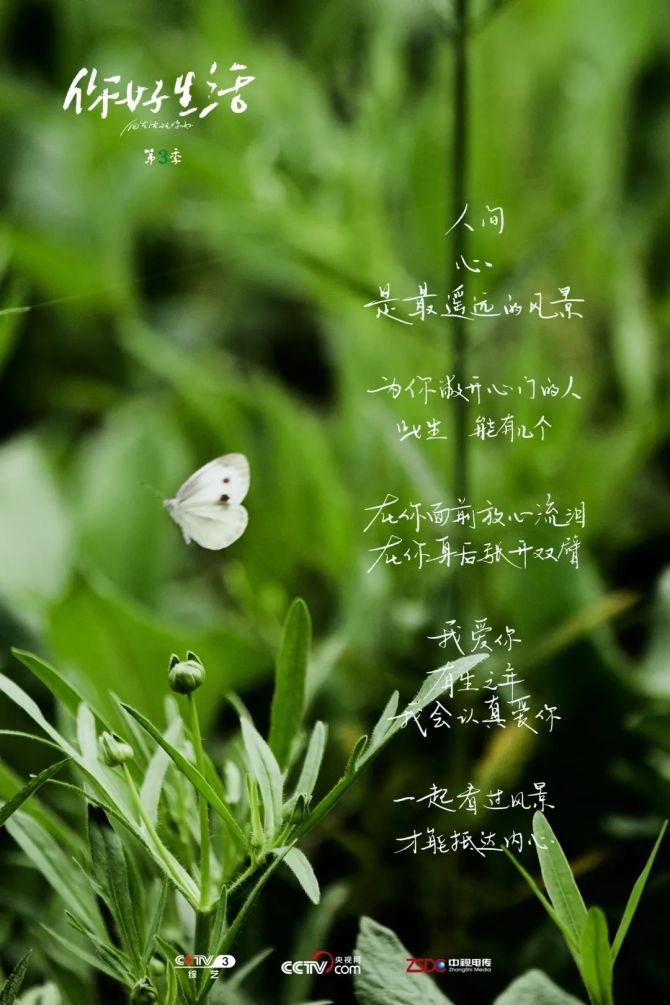 你好生活
第3季
人间
心
是最遥远的风景
为你敞开心门的人
此生 能有几个
在你面前放心流泪
在你身后张开双臂
我爱你
有生之年
我会认真爱你
一起看过风景
才能抵达内心
CCTV 3
综艺
CCTV 央视网
.com
ZSDC 中视电传
ZhongShi Media